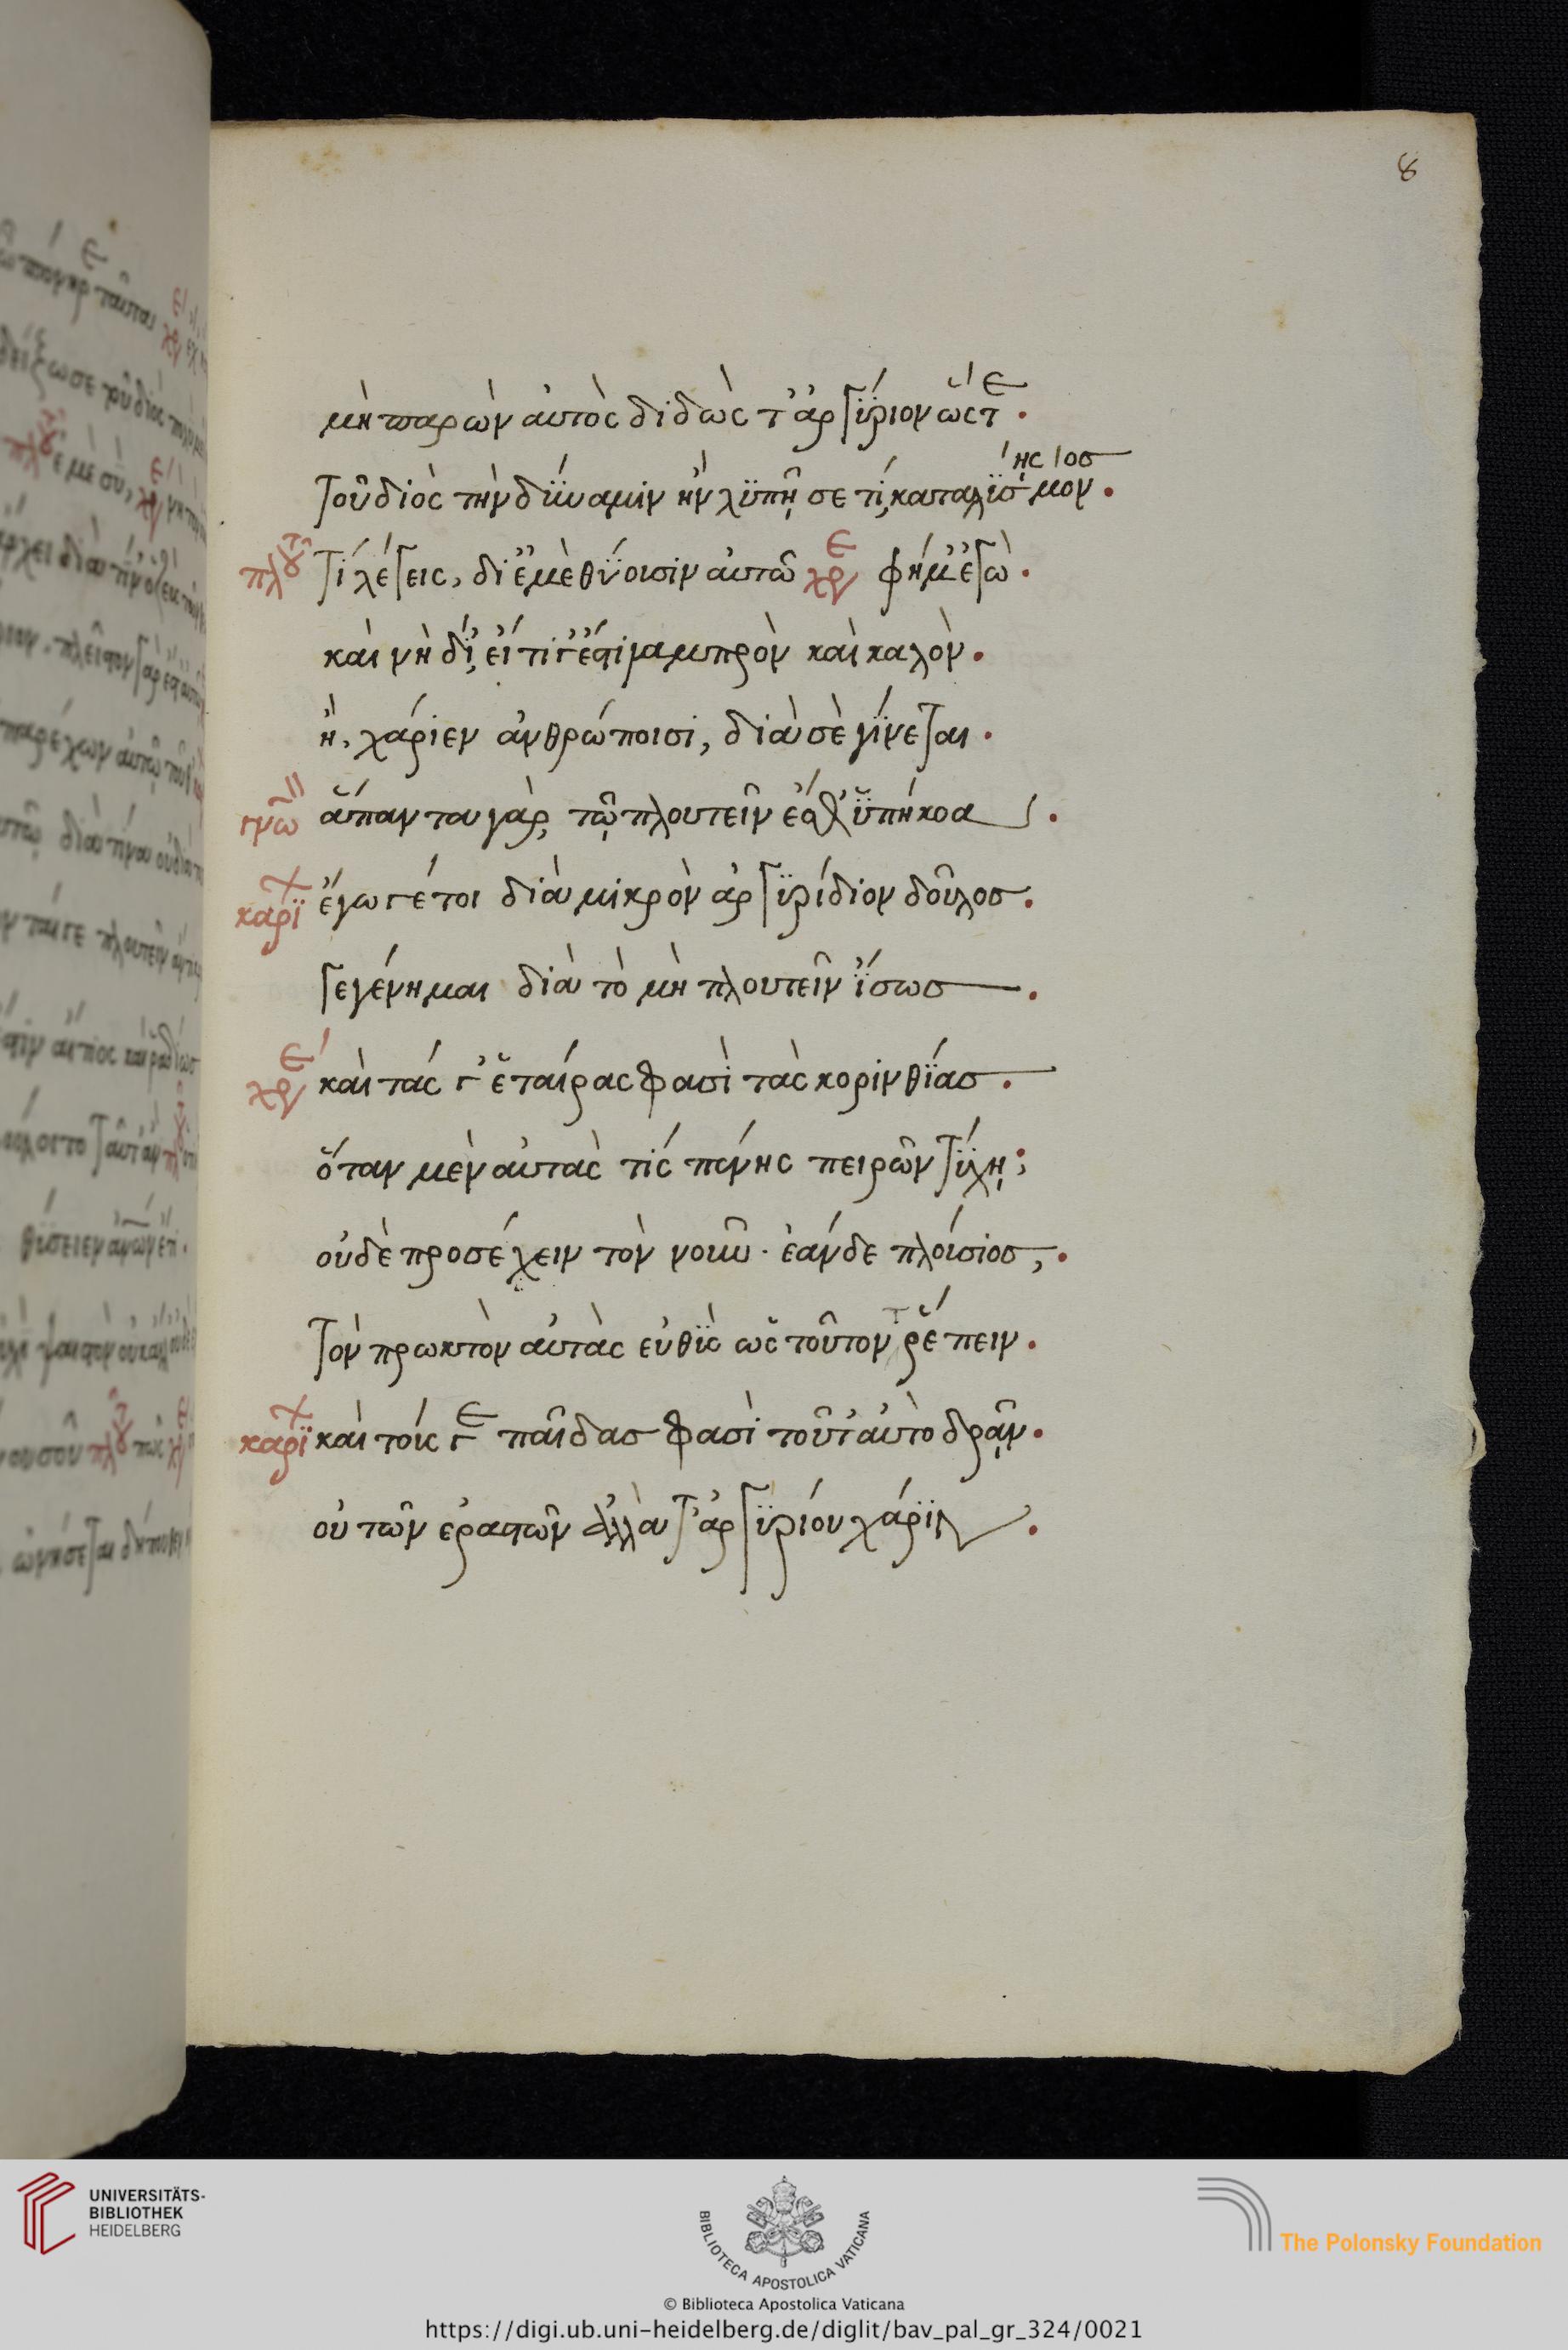 8
μὴ παρὼν αὐτὸς διδῶς τ' ἀργύριον ὥστε.
τοῦ διὸς τὴν δύναμιν ἢν λϋπῆ σε τί, καταλύσης μόνος.
πλοῦτ τί λέγεις, δι' ἐμὲ θύουσιν αὐτῶ χρε φήμ' ἐγώ.
καὶ νὴ δί, εἴ τί γ' ἔστι λαμπρὸν καὶ καλὸν.
ἢ, χάριεν ἀνθρώποισι, διὰ σὲ γίνεται.
γνώ ἅπαντα γὰρ, τῶ πλουτεῖν ἔσθ' ὕπήκοα.
καρϊχ ἔγωγέ τοι διὰ μικρὸν ἀργϋρίδιον δοῦλος.
γεγένημαι διὰ τὸ μὴ πλουτεῖν ἴσως.
χρε καὶ τάς γ' ἑταίρας φασὶ τὰς κορινθίας.
ὅταν μὲν αὐτὰς τίς πένης πειρῶν τύχη;
οὐδὲ προσέχειν τὸν νοῦν· ἐὰν δε πλούσιος,.
τὸν πρωκτὸν αὐτὰς εὐθὺς ὡς τοῦτον τρέπειν.
καρϊχ καὶ τούς γε παῖδας φασὶ τοῦτ' αὐτὸ δρᾶν.
οὐ τῶν ἐραστῶν ἀλλὰ τ' ἀργϋρίου χάριν.
UNIVERSITÄTS-
BIBLIOTHEK
HEIDELBERG
BIBLIOTECA APOSTOLICA VATICANA
The Polonsky Foundation
© Biblioteca Apostolica Vaticana
https://digi.ub.uni-heidelberg.de/diglit/bav_pal_gr_324/0021